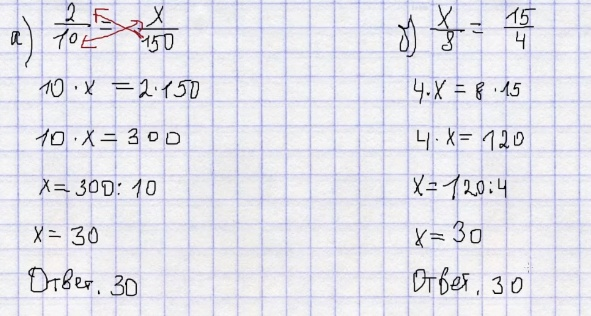 а) 2/10 = x/150
10 · x = 2 · 150
10 · x = 300
x = 300 : 10
x = 30
Ответ. 30
б) x/8 = 15/4
4 · x = 8 · 15
4 · x = 120
x = 120 : 4
x = 30
Ответ. 30